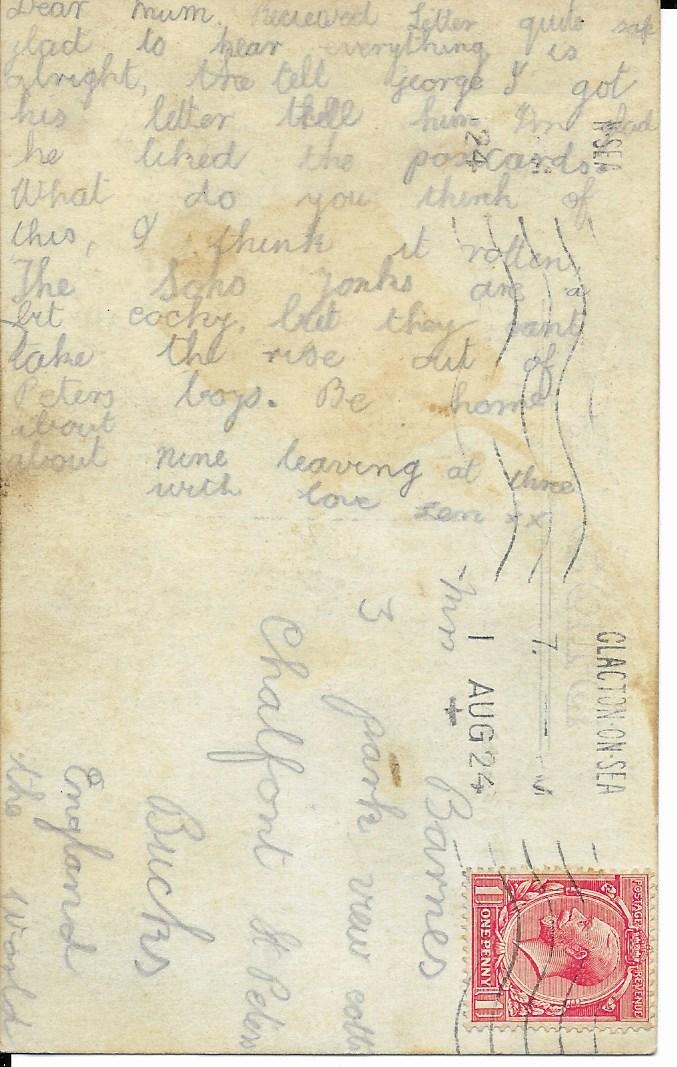 Dear Mum. Recieved Letter quite safe
glad to hear everything is
alright, tell George I got
his letter tell him Im glad
he liked the postcards.
What do you think of
this, I think it rotten.
The Soho are a
bit cocky, but they cant
take the rise out of
Peters boys. Be home
about
about nine leaving at three
with love Len xx
Mrs Barnes
3 park view cotts
Chalfont St Peters
Bucks
England
the World
CLACTON-ON-SEA
7.
1 AUG 24
N-SEA
24
POSTAGE REVENUE
1 ONE PENNY 1